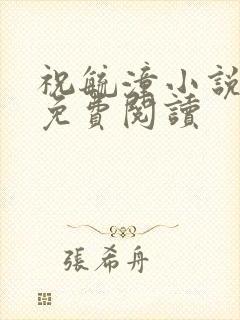 祝毓潼小說
免費閱讀
張希舟